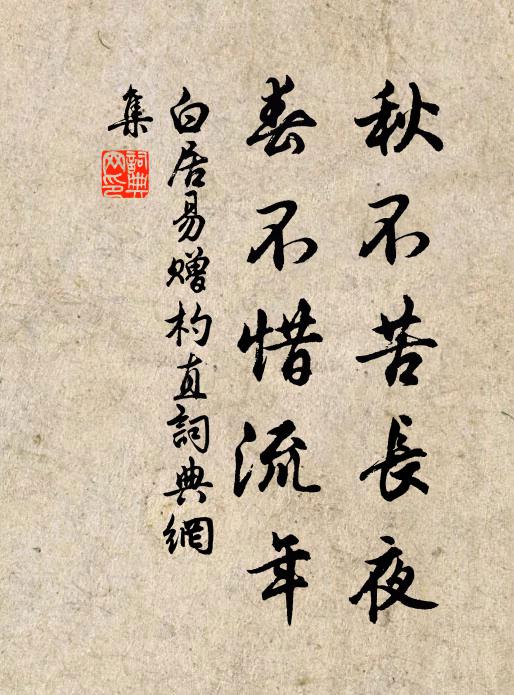 秋不苦長夜
春不惜流年
白居易赠杓直詞典網
集
詞典網印